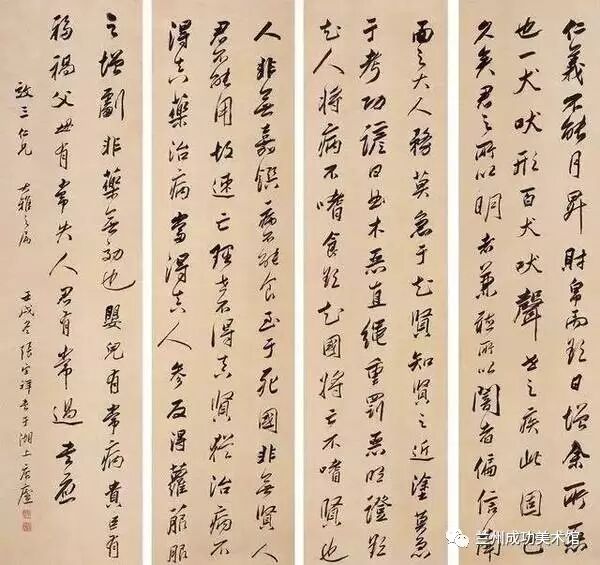 仁義不能月昇財帛而欲日增余所惡
也一犬吠形百犬吠聲世之疾此固已
久矣君之所以明者兼聽所以闇者偏信南
面之大人務莫急于知賢知賢之近塗莫急
于考功諺曰曲木惡直繩重罰惡明證欲
知人將病不嗜食欲知國將亡不嗜賢也
人非無嘉饌病不能食至于死國非無賢人
君不能用故速亡理世不得真賢猶治病不
得真藥治病當得真人參反得蘿菔服
之增劇非藥無功也嬰兒有常病貴臣有
禍父母有常失人君有常過書應
三仁兄大雅之屬
壬戌冬張宗祥書于湖上居廬
兰州成功美术馆